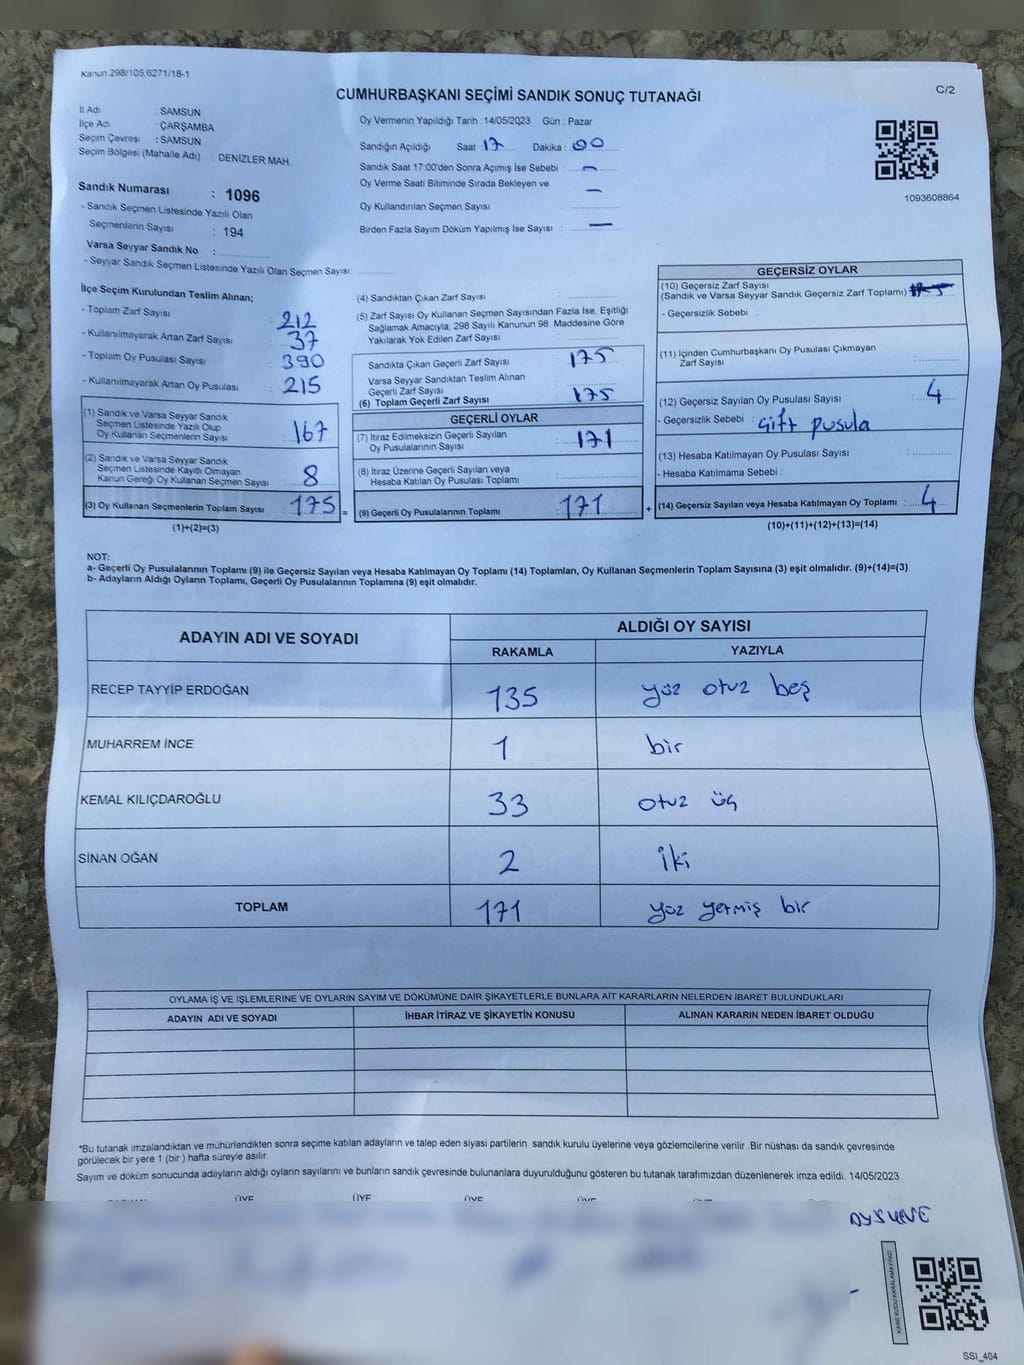 Kanun.298/105.6271/18-1
CUMHURBAŞKANI SEÇİMİ SANDIK SONUÇ TUTANAĞI
C/2
İl Adı : SAMSUN
İlçe Adı : ÇARŞAMBA
Seçim Çevresi : SAMSUN
Seçim Bölgesi (Mahalle Adı) : DENİZLER MAH.
Oy Vermenin Yapıldığı Tarih : 14/05/2023 Gün : Pazar
Sandığın Açıldığı Saat 17 Dakika : 00
Sandık Saat 17:00'den Sonra Açımış İse Sebebi : —
Oy Verme Saati Bitiminde Sırada Bekleyen ve —
Oy Kullandırılan Seçmen Sayısı
Birden Fazla Sayım Döküm Yapılmış İse Sayısı : —
1093608864
Sandık Numarası : 1096
- Sandık Seçmen Listesinde Yazılı Olan
Seçmenlerin Sayısı : 194
Varsa Seyyar Sandık No :
- Seyyar Sandık Seçmen Listesinde Yazılı Olan Seçmen Sayısı:
İlçe Seçim Kurulundan Teslim Alınan;
- Toplam Zarf Sayısı 212
- Kullanılmayarak Artan Zarf Sayısı 37
- Toplam Oy Pusulası Sayısı 390
- Kullanılmayarak Artan Oy Pusulası 215
(1) Sandık ve Varsa Seyyar Sandık
Seçmen Listesinde Yazılı Olup
Oy Kullanan Seçmenlerin Sayısı 167
(2) Sandık ve Varsa Seyyar Sandık
Seçmen Listesinde Kayıtlı Olmayan
Kanun Gereği Oy Kullanan Seçmen Sayısı : 8
(3) Oy Kullanan Seçmenlerin Toplam Sayısı : 175 =
(1)+(2)=(3)
(4) Sandıktan Çıkan Zarf Sayısı :
(5) Zarf Sayısı Oy Kullanan Seçmen Sayısından Fazla İse, Eşitliği
Sağlamak Amacıyla, 298 Sayılı Kanunun 98. Maddesine Göre
Yakılarak Yok Edilen Zarf Sayısı :
Sandıkta Çıkan Geçerli Zarf Sayısı : 175
Varsa Seyyar Sandıktan Teslim Alınan
Geçerli Zarf Sayısı
(6) Toplam Geçerli Zarf Sayısı : 175
GEÇERLİ OYLAR
(7) İtiraz Edilmeksizin Geçerli Sayılan
Oy Pusulalarının Sayısı : 171
(8) İtiraz Üzerine Geçerli Sayılan veya
Hesaba Katılan Oy Pusulası Toplamı :
(9) Geçerli Oy Pusulalarının Toplamı : 171 +
GEÇERSİZ OYLAR
(10) Geçersiz Zarf Sayısı
(Sandık ve Varsa Seyyar Sandık Geçersiz Zarf Toplamı) :
- Geçersizlik Sebebi :
(11) İçinden Cumhurbaşkanı Oy Pusulası Çıkmayan
Zarf Sayısı :
(12) Geçersiz Sayılan Oy Pusulası Sayısı : 4
- Geçersizlik Sebebi : Çift pusula
(13) Hesaba Katılmayan Oy Pusulası Sayısı :
- Hesaba Katılmama Sebebi :
(14) Geçersiz Sayılan veya Hesaba Katılmayan Oy Toplamı : 4
(10)+(11)+(12)+(13)=(14)
NOT:
a- Geçerli Oy Pusulalarının Toplamı (9) ile Geçersiz Sayılan veya Hesaba Katılmayan Oy Toplamı (14) Toplamları, Oy Kullanan Seçmenlerin Toplam Sayısına (3) eşit olmalıdır. (9)+(14)=(3)
b- Adayların Aldığı Oyların Toplamı, Geçerli Oy Pusulalarının Toplamına (9) eşit olmalıdır.
ADAYIN ADI VE SOYADI
ALDIĞI OY SAYISI
RAKAMLA YAZIYLA
RECEP TAYYİP ERDOĞAN 135 yüz otuz beş
MUHARREM İNCE 1 bir
KEMAL KILIÇDAROĞLU 33 otuz üç
SİNAN OĞAN 2 iki
TOPLAM 171 yüz yetmiş bir
OYLAMA İŞ VE İŞLEMLERİNE VE OYLARIN SAYIM VE DÖKÜMÜNE DAİR ŞİKAYETLERLE BUNLARA AİT KARARLARIN NELERDEN İBARET BULUNDUKLARI
ADAYIN ADI VE SOYADI İHBAR İTİRAZ VE ŞİKAYETİN KONUSU ALINAN KARARIN NEDEN İBARET OLDUĞU
*Bu tutanak imzalandıktan ve mühürlendikten sonra seçime katılan adayların ve talep eden siyasi partilerin sandık kurulu üyelerine veya gözlemcilerine verilir .Bir nüshası da sandık çevresinde
görülecek bir yere 1 (bir ) hafta süreyle asılır.
Sayım ve döküm sonucunda adayların aldığı oyların sayılarını ve bunların sandık çevresinde bulunanlara duyurulduğunu gösteren bu tutanak tarafımızdan düzenlenerek imza edildi. 14/05/2023
ÜYE ÜYE ÜYE
KARE KODU KARALAMAYINIZ!
SSI_404